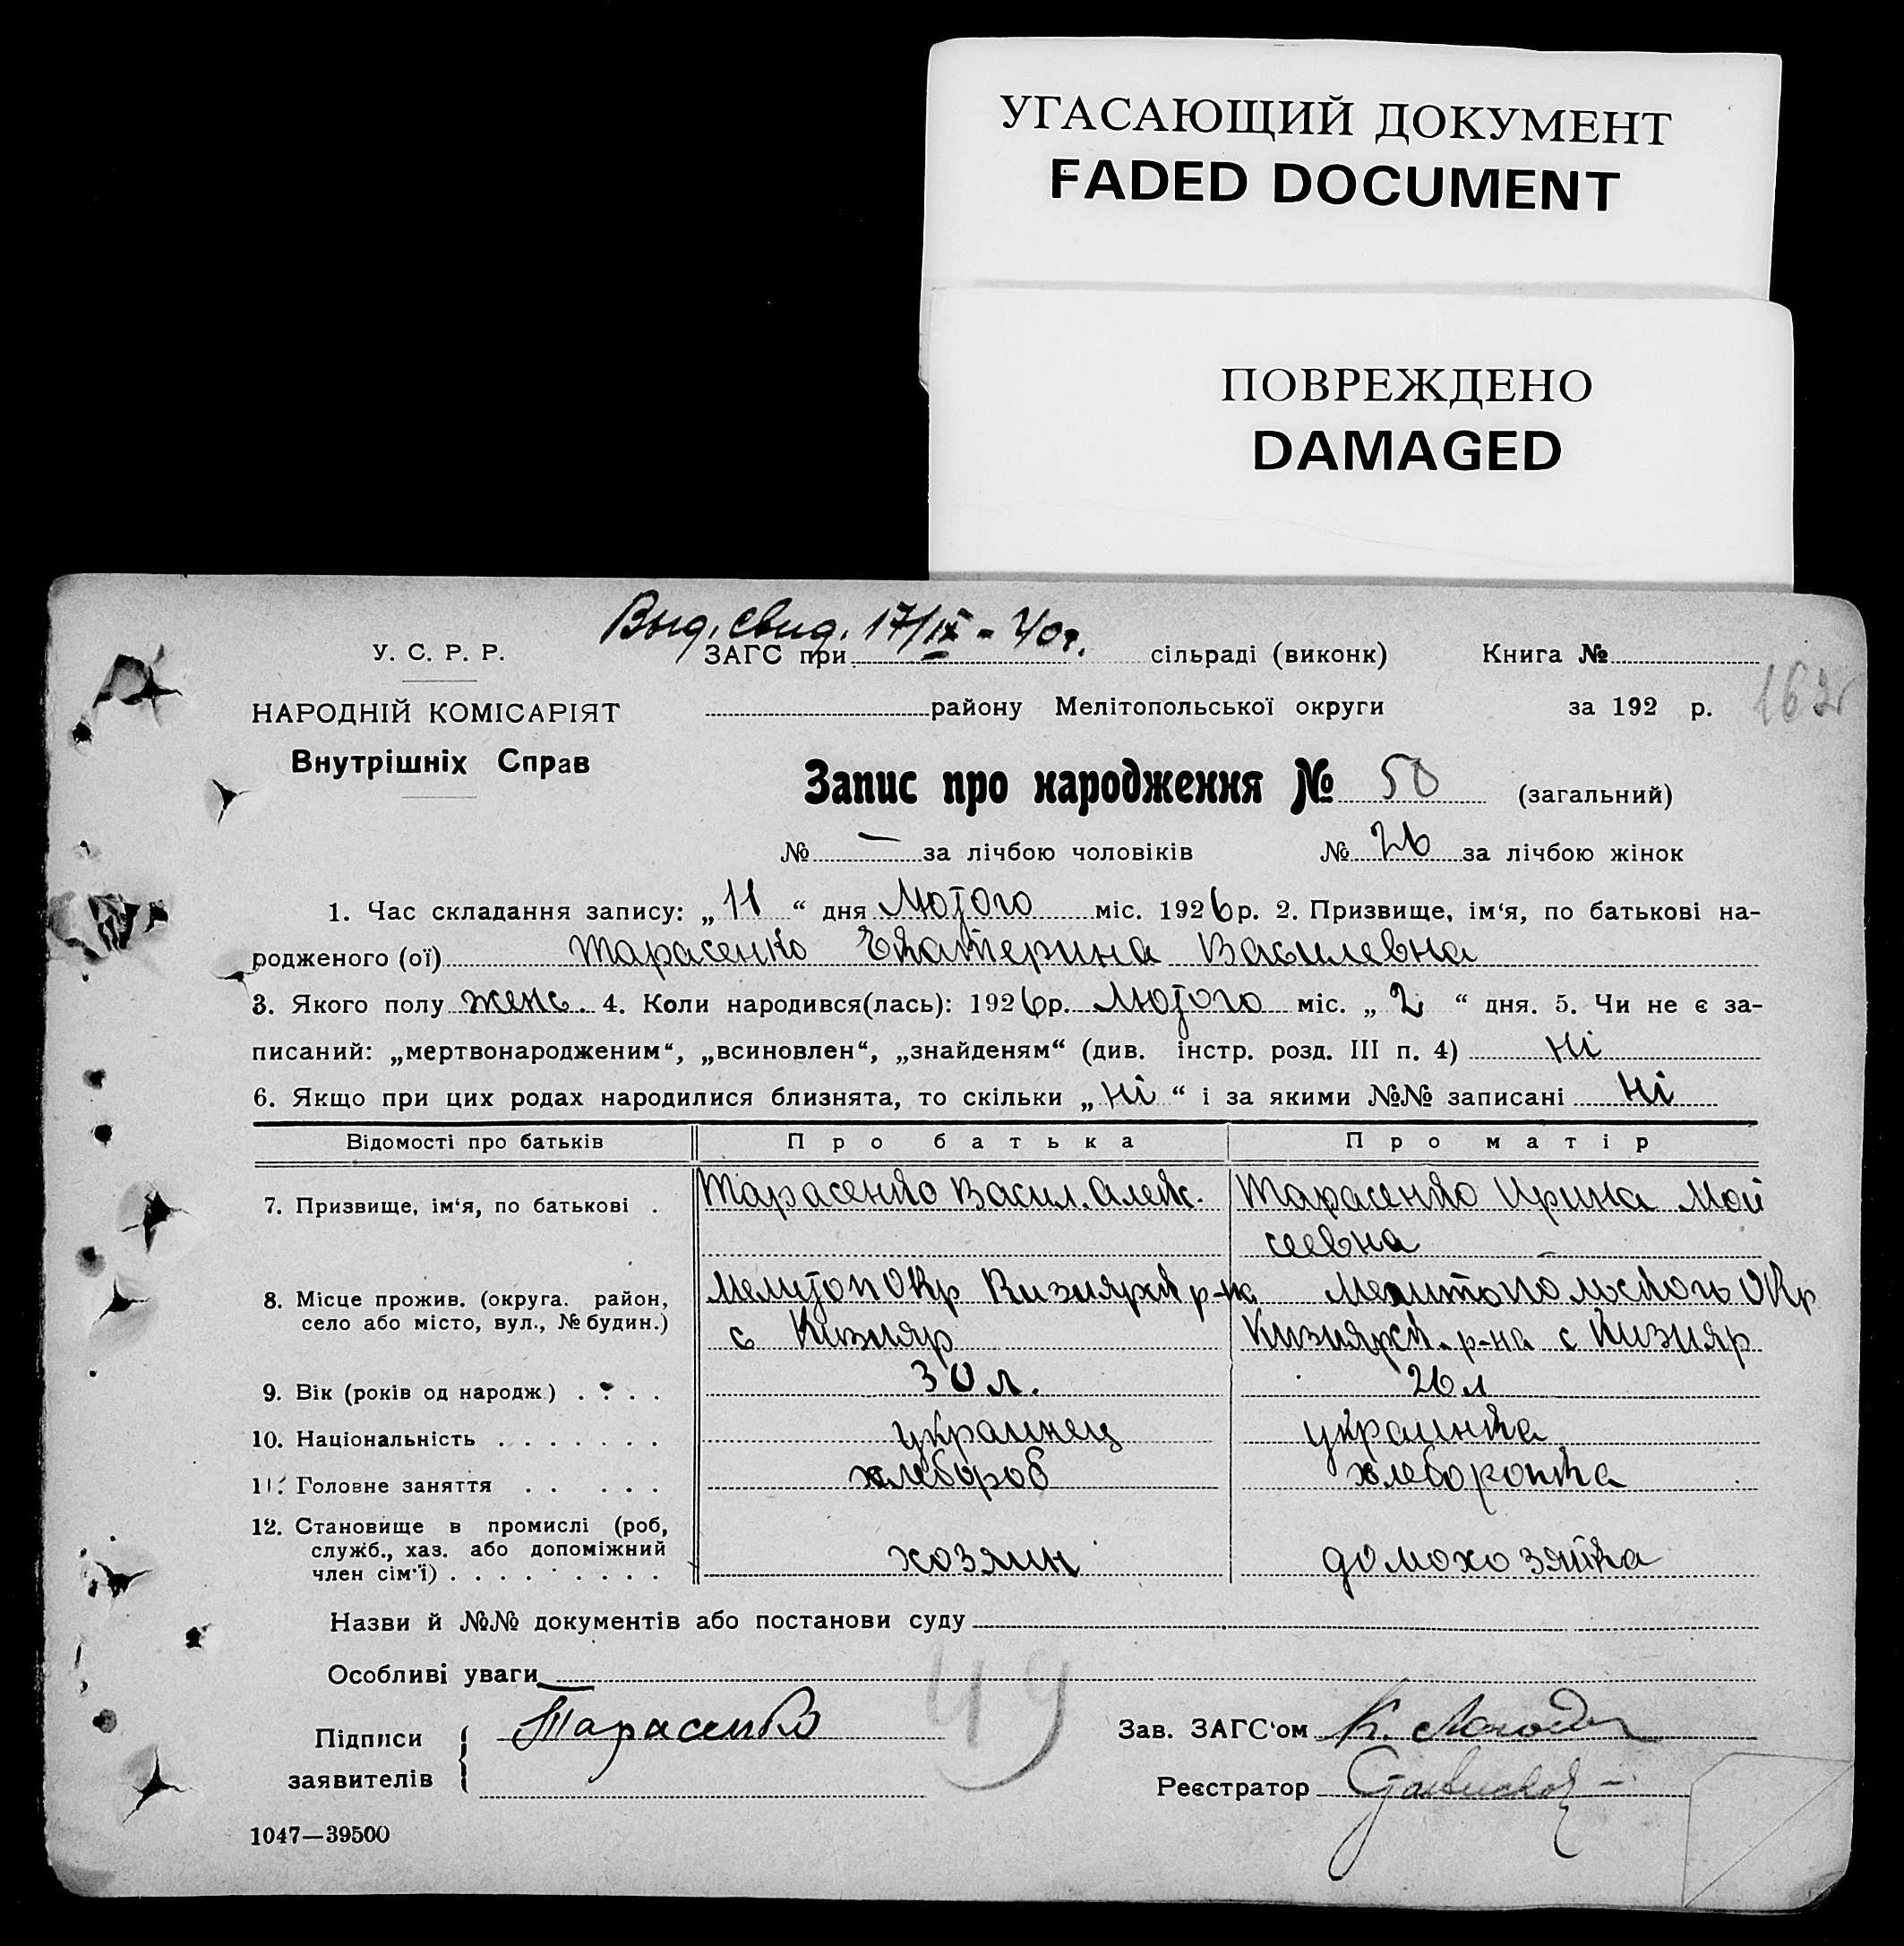 УГАСАЮЩИЙ ДОКУМЕНТ
FADED DOCUMENT
ПОВРЕЖДЕНО
DAMAGED
Выд. свид. 17/IX - 40г.
У. С. Р. Р. ЗАГС при сільраді (виконк) Книга №
НАРОДНІЙ КОМІСАРІЯТ району Мелітопольської округи за 192 р.
Внутрішніх Справ
Запис про народження № 50 (загальний)
№ — за лічбою чоловіків № 26 за лічбою жінок
1. Час складання запису: „ 11 “ дня Лютого міс. 1926 р. 2. Призвище, ім‘я, по батькові на-
родженого (ої) Тарасенко Екатерина Василевна
3. Якого полу женс. 4. Коли народився(лась): 1926 р. Лютого міс. „ 2 “ дня. 5. Чи не є за-
писаний: „мертвонародженим“, „всиновлен“, „знайденям“ (див. інстр. розд. III п. 4) Ні
6. Якщо при цих родах народилися близнята, то скільки „ Ні “ і за якими №№ записані Ні
Відомості про батьків Про батька Про матір
7. Призвище, ім‘я, по батькові . Тарасенко Васил. Алекс. Тарасенко Ирина Мои
сеевна
8. Місце прожив. (округа. район, Мелитоп Окр Кизиярск р-на Мелитопольского Окр
село або місто, вул., № будин.) с Кизияр Кизиярск. р-на с Кизияр
9. Вік (років од народж.) . . . . 30 л. 26 л
10. Національність . . . . . . . украинец украинка
11. Головне заняття . . . . . хлебороб хлеборопка
12. Становище в промислі (роб,
служб., хаз. або допоміжний
член сім‘ї) . . . . . . . . . хозяин домохозяйка
Назви й №№ документів або постанови суду
Особливі уваги
49
Підписи Тарасенко Зав. ЗАГС‘ом К.
заявителів Реєстратор
1047—39500